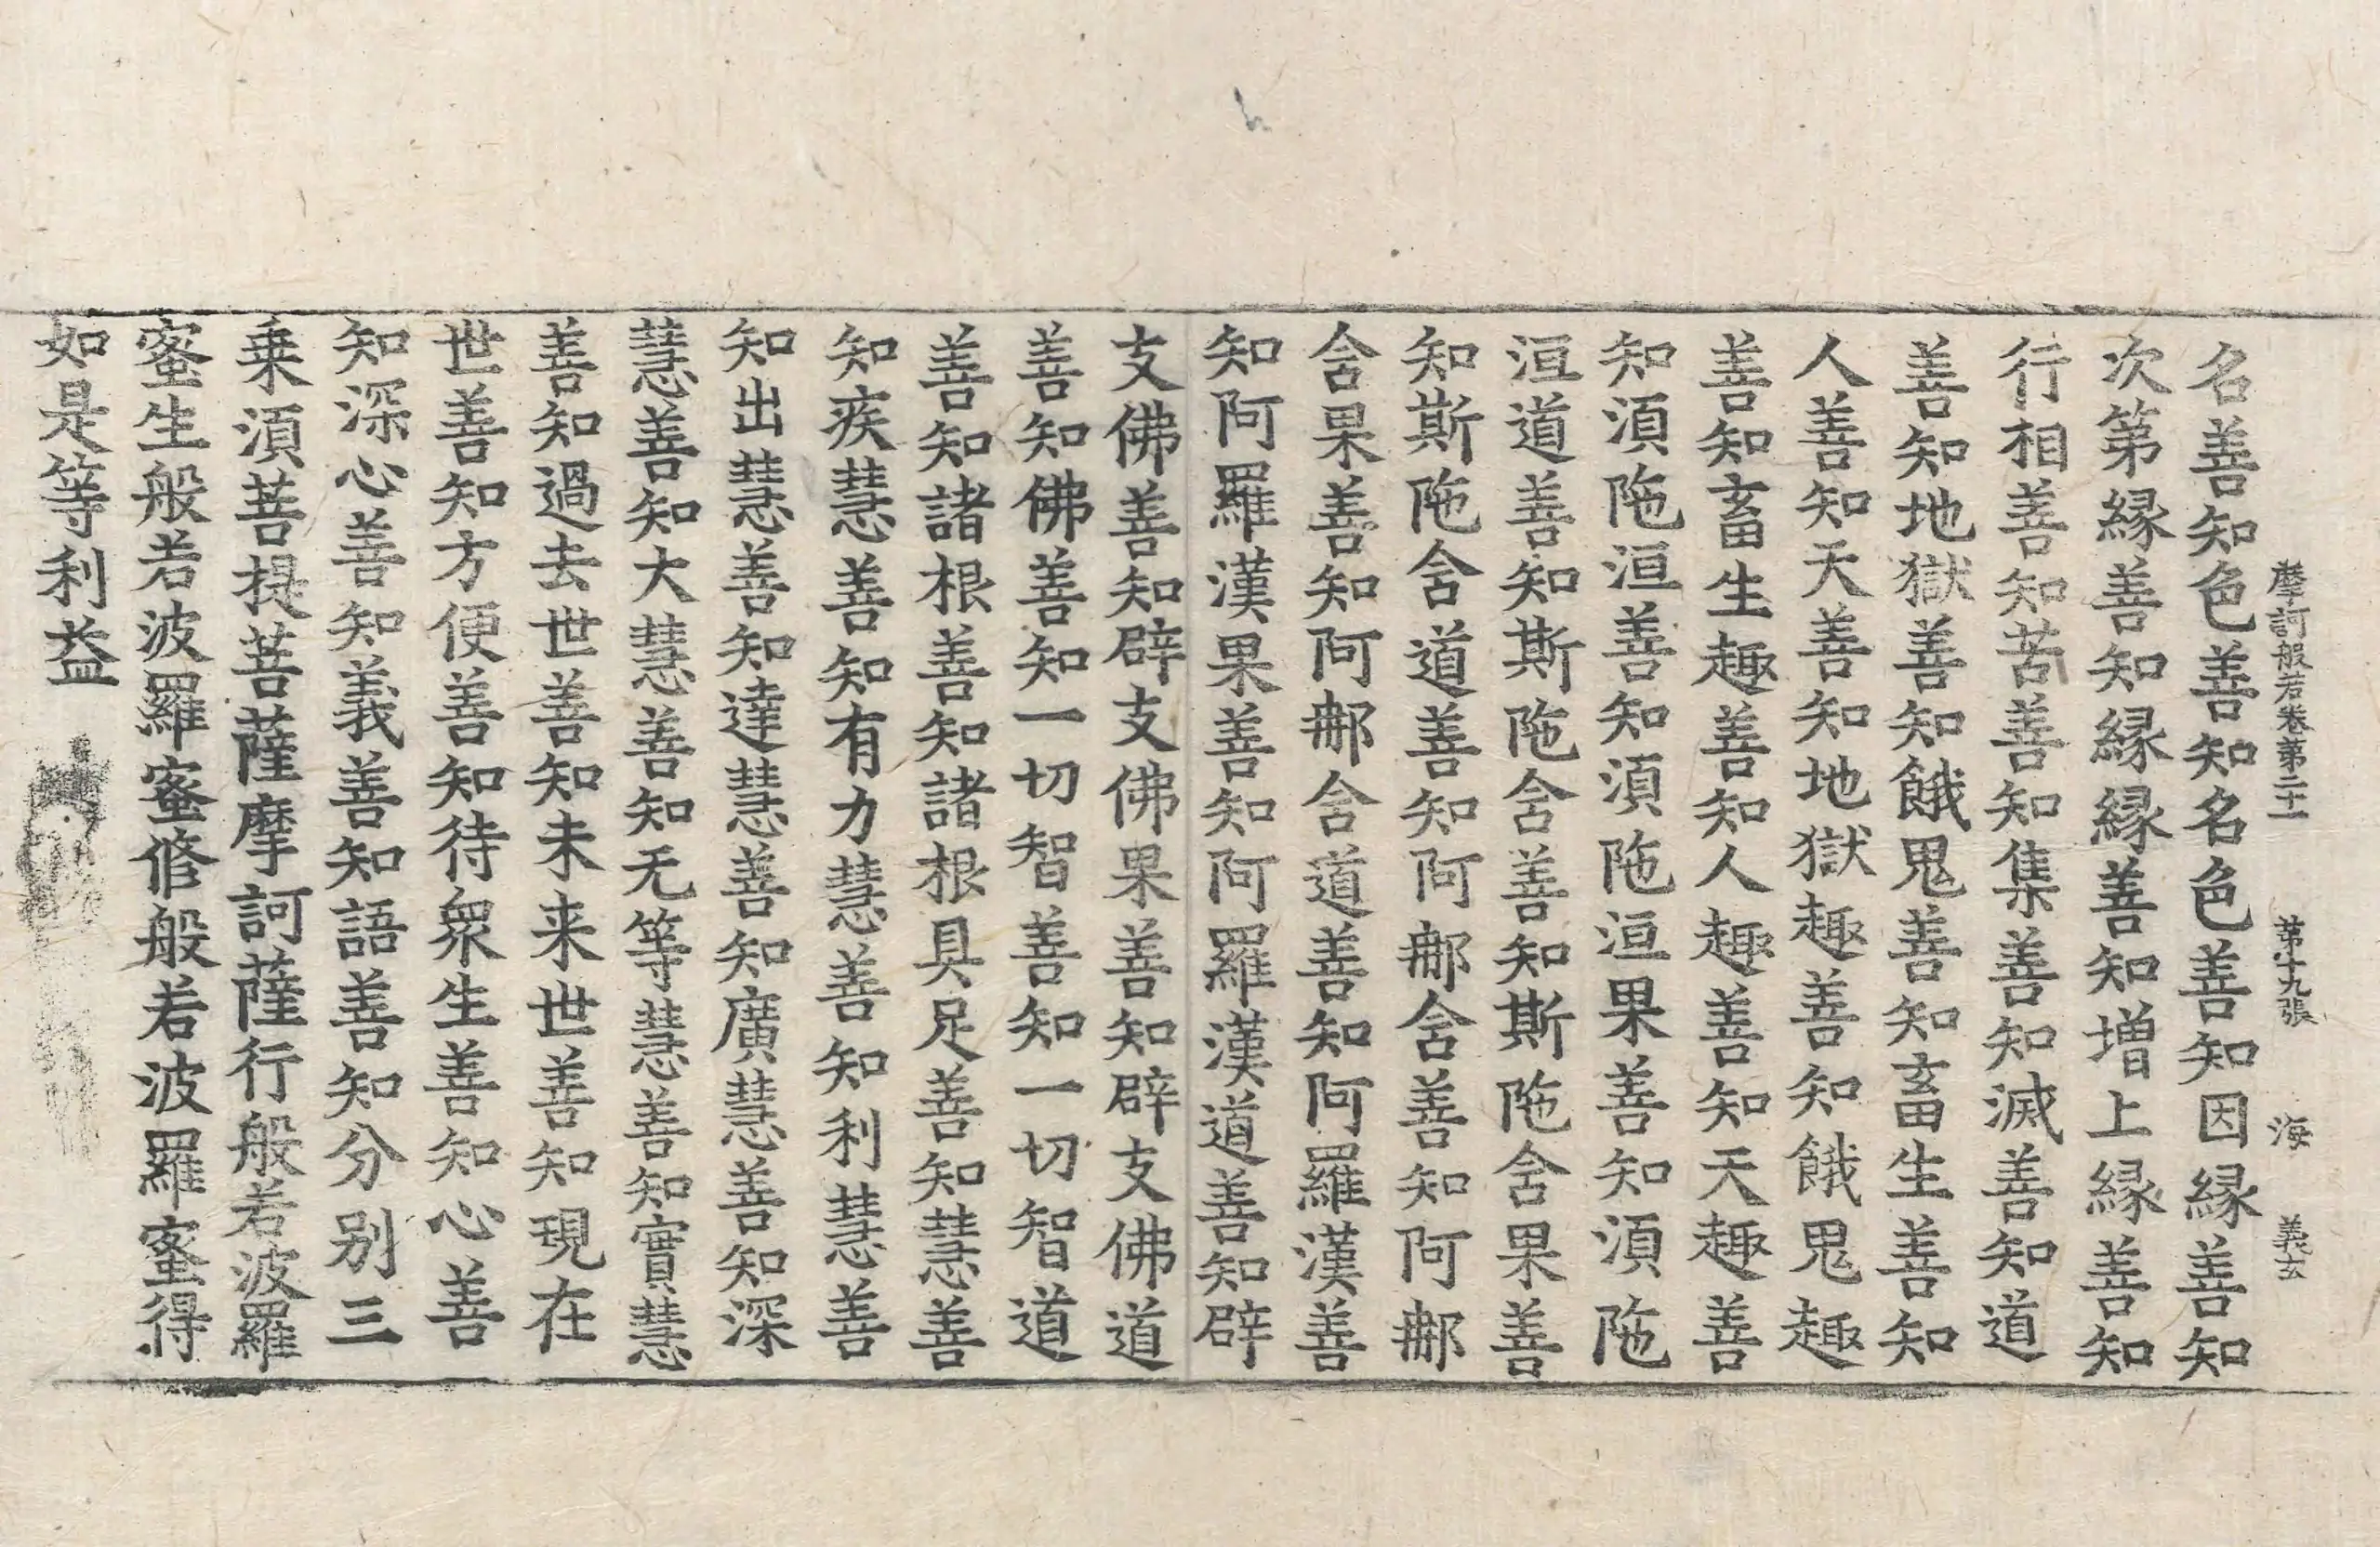 摩訶般若卷第二十一 第十九張 海 義玄
名善知色善知名色善知因縁善知
次第縁善知縁縁善知增上縁善知
行相善知苦善知集善知滅善知道
善知地獄善知餓鬼善知畜生善知
人善知天善知地獄趣善知餓鬼趣
善知畜生趣善知人趣善知天趣善
知湏陁洹善知湏陁洹果善知湏陁
洹道善知斯陁含善知斯陁含果善
知斯陁含道善知阿那含善知阿那
含果善知阿那含道善知阿羅漢善
知阿羅漢果善知阿羅漢道善知辟
支佛善知辟支佛果善知辟支佛道
善知佛善知一切智善知一切智道
善知諸根善知諸根具足善知慧善
知疾慧善知有力慧善知利慧善
知出慧善知達慧善知廣慧善知深
慧善知大慧善知无等慧善知實慧
善知過去世善知未来世善知現在
世善知方便善知待衆生善知心善
知深心善知義善知語善知分别三
乗湏菩提菩薩摩訶薩行般若波羅
蜜生般若波羅蜜修般若波羅蜜得
如是等利益